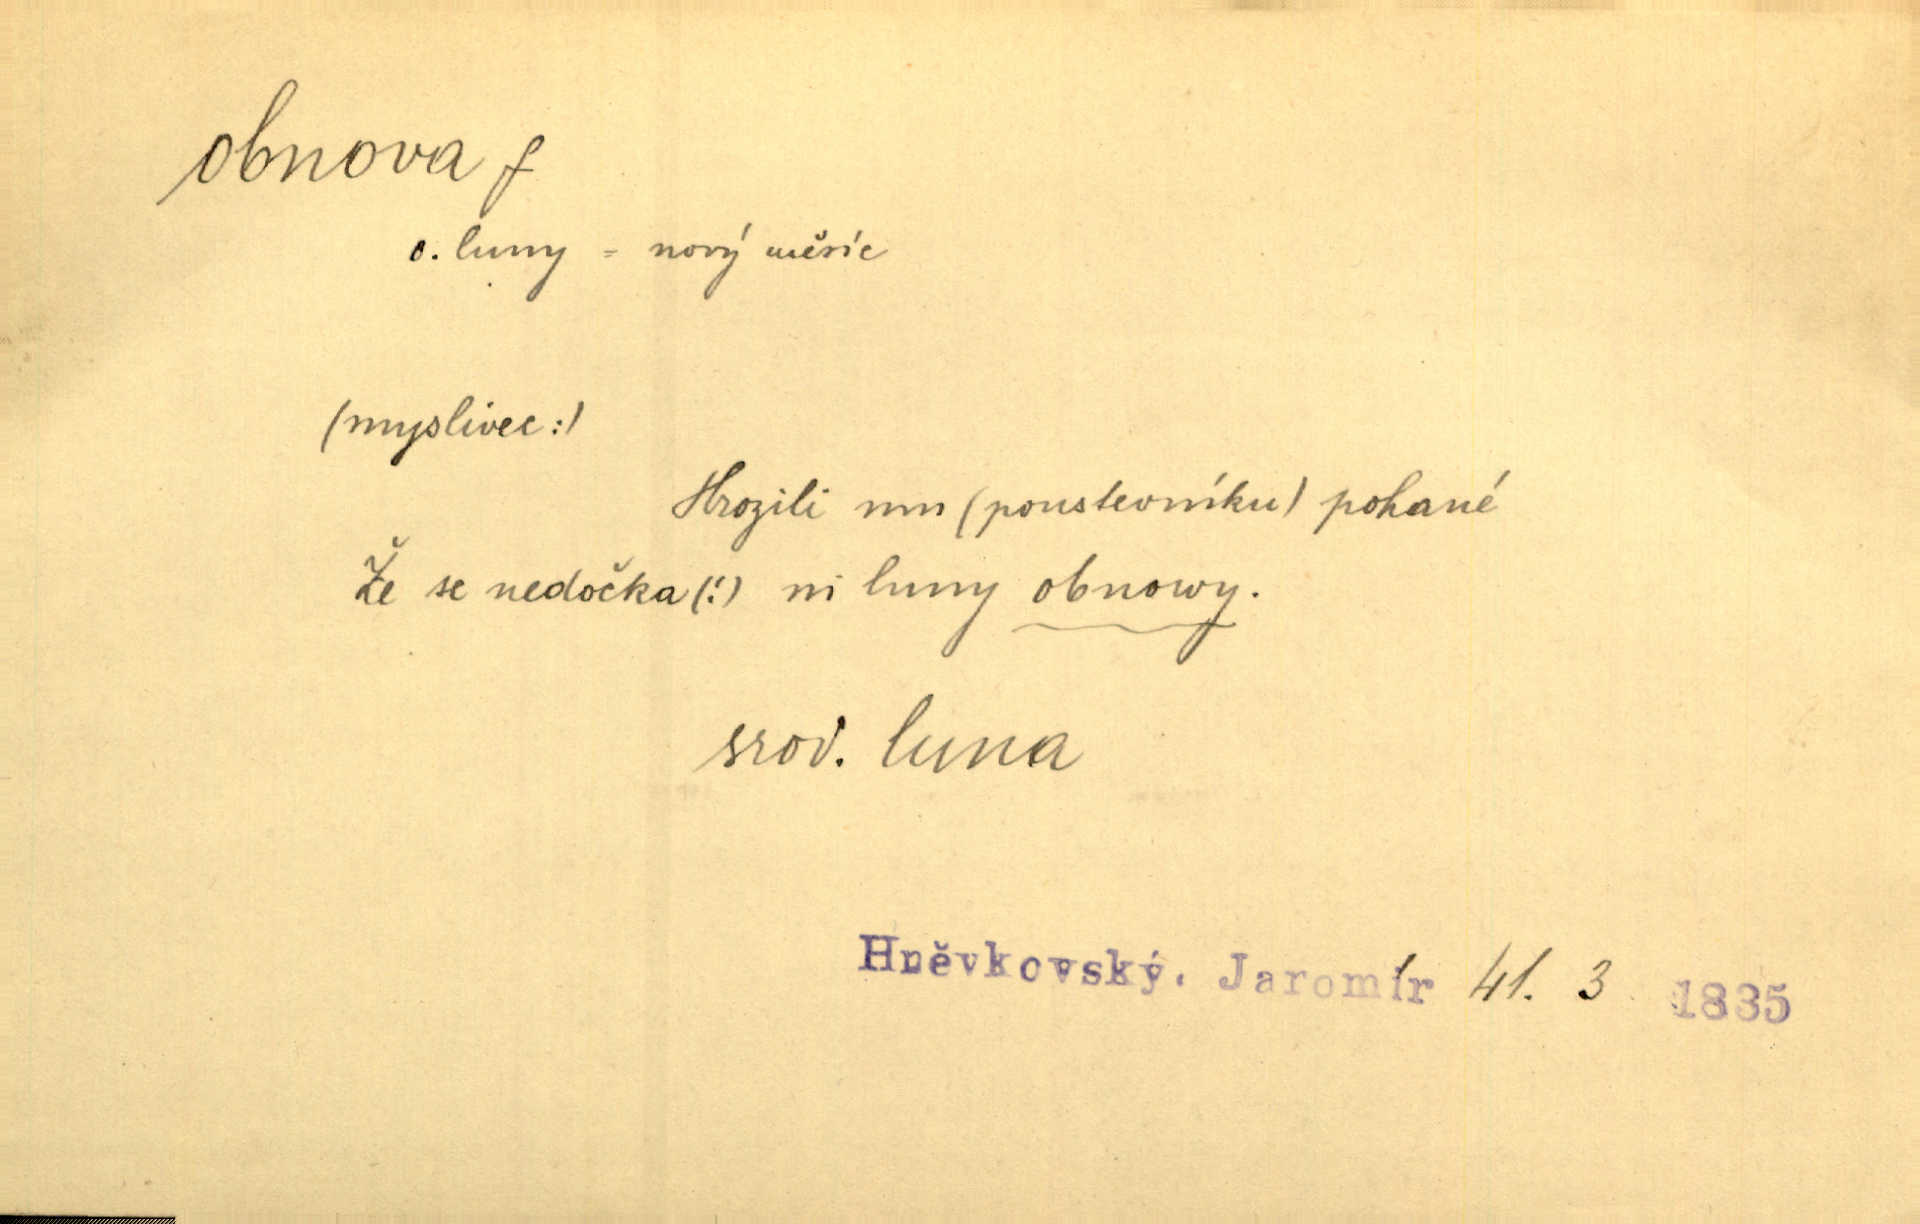 obnova f
o. luny = nový měsíc
(myslivec:)
Hrozili mu (poustevníku) pohané
Že se nedočka(!) ni luny obnowy.
srov. luna
Hněvkovský. Jaromír 41. 3 1835